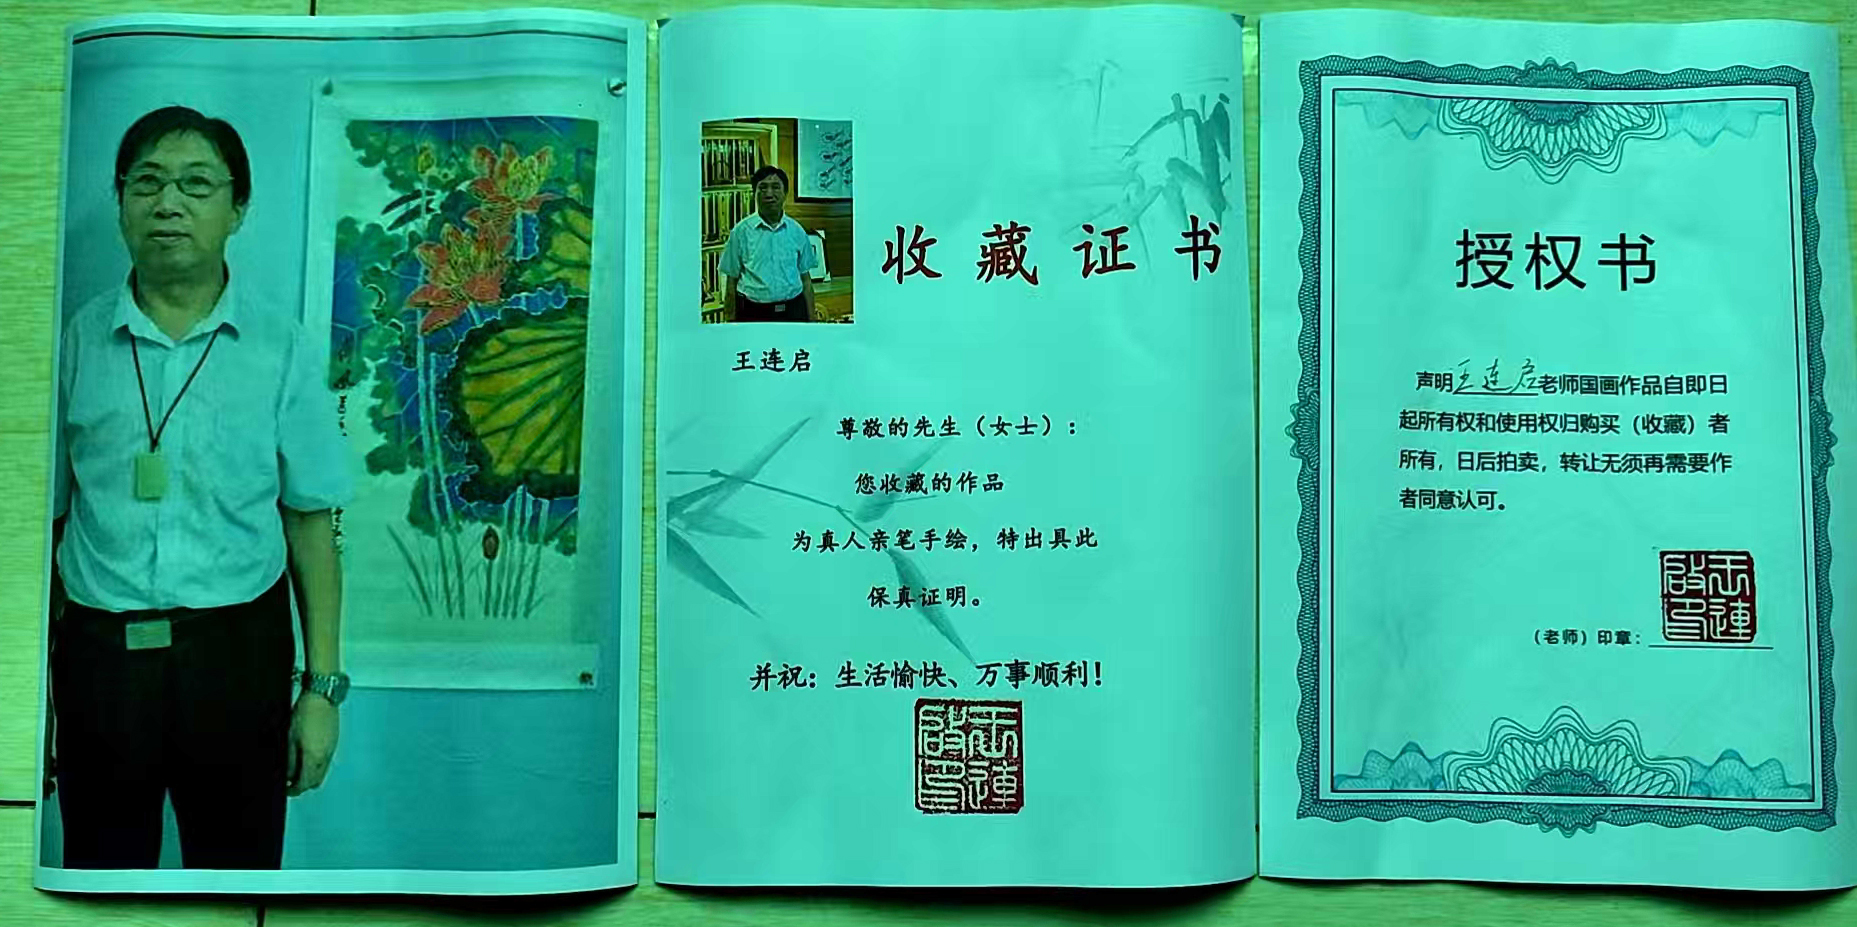 收藏证书
王连启
尊敬的先生（女士）：
您收藏的作品
为真人亲笔手绘，特出具此
保真证明。
并祝：生活愉快、万事顺利！
王連啟印
授权书
声明王连启老师国画作品自即日
起所有权和使用权归购买（收藏）者
所有，日后拍卖，转让无须再需要作
者同意认可。
（老师）印章：
王連啟印